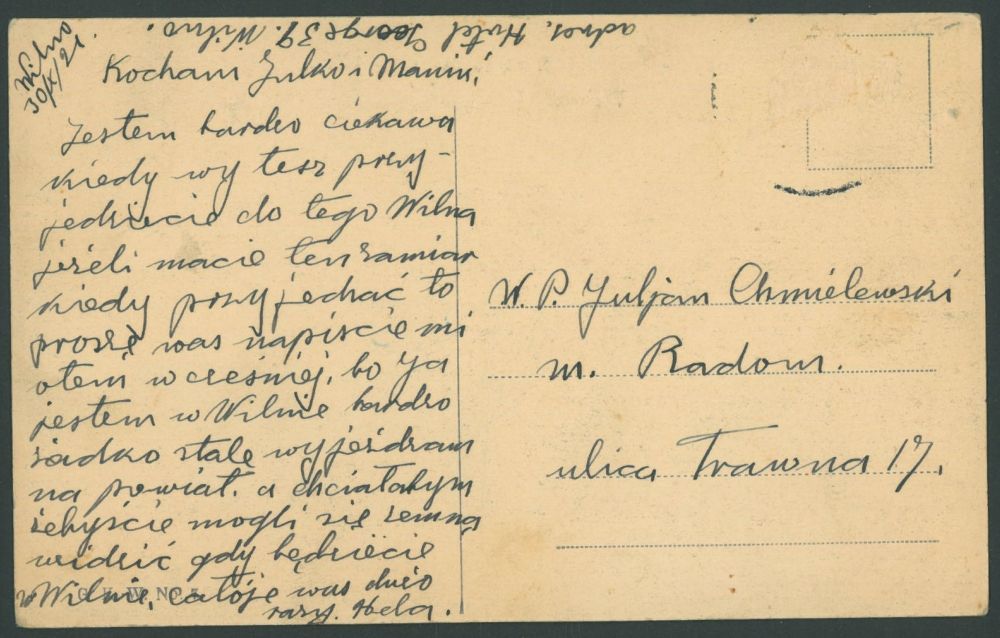 Wilno
30/X/21.
adres. Hotel George 39. Wilno.
Kocham Julko i Maniu!
Jestem bardzo ciekawa
kiedy wy tesz przy-
jedziecie do tego Wilna
jeżeli macie ten zamiar
kiedy przyjechać to
proszę was napiście mi
otem wcześniej, bo ja
jestem w Wilnie bardzo
żadko stale wyjeżdzam
na powiat. a chciałabym
żebyście mogli się zemną
widzić gdy będziecie
w Wilnie, całoję was dużo
razy. Hela.
W. P. Juljan Chmielewski
m. Radom.
ulica Trawna 17.